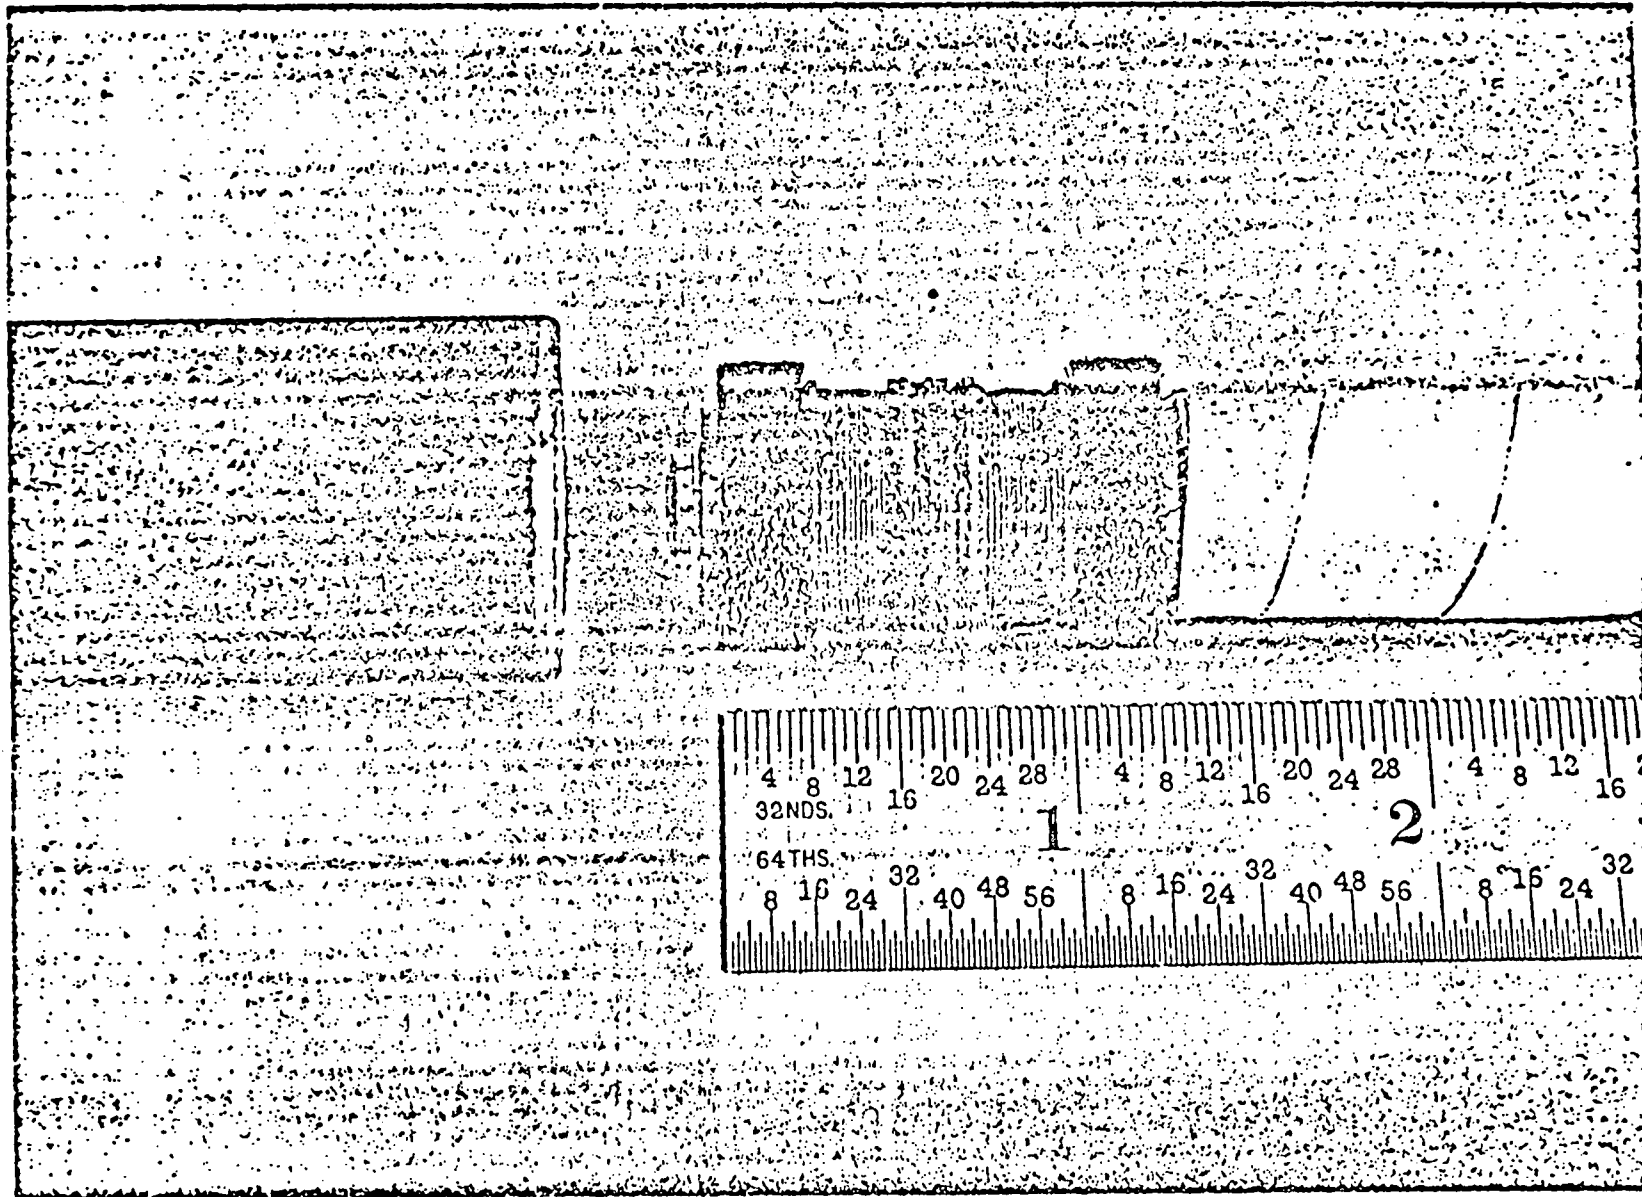 4 8 12 16 20 24 28 4 8 12 16 20 24 28 4 8 12 16
32NDS.
1 2
64THS.
8 16 24 32 40 48 56 8 16 24 32 40 48 56 8 16 24 32